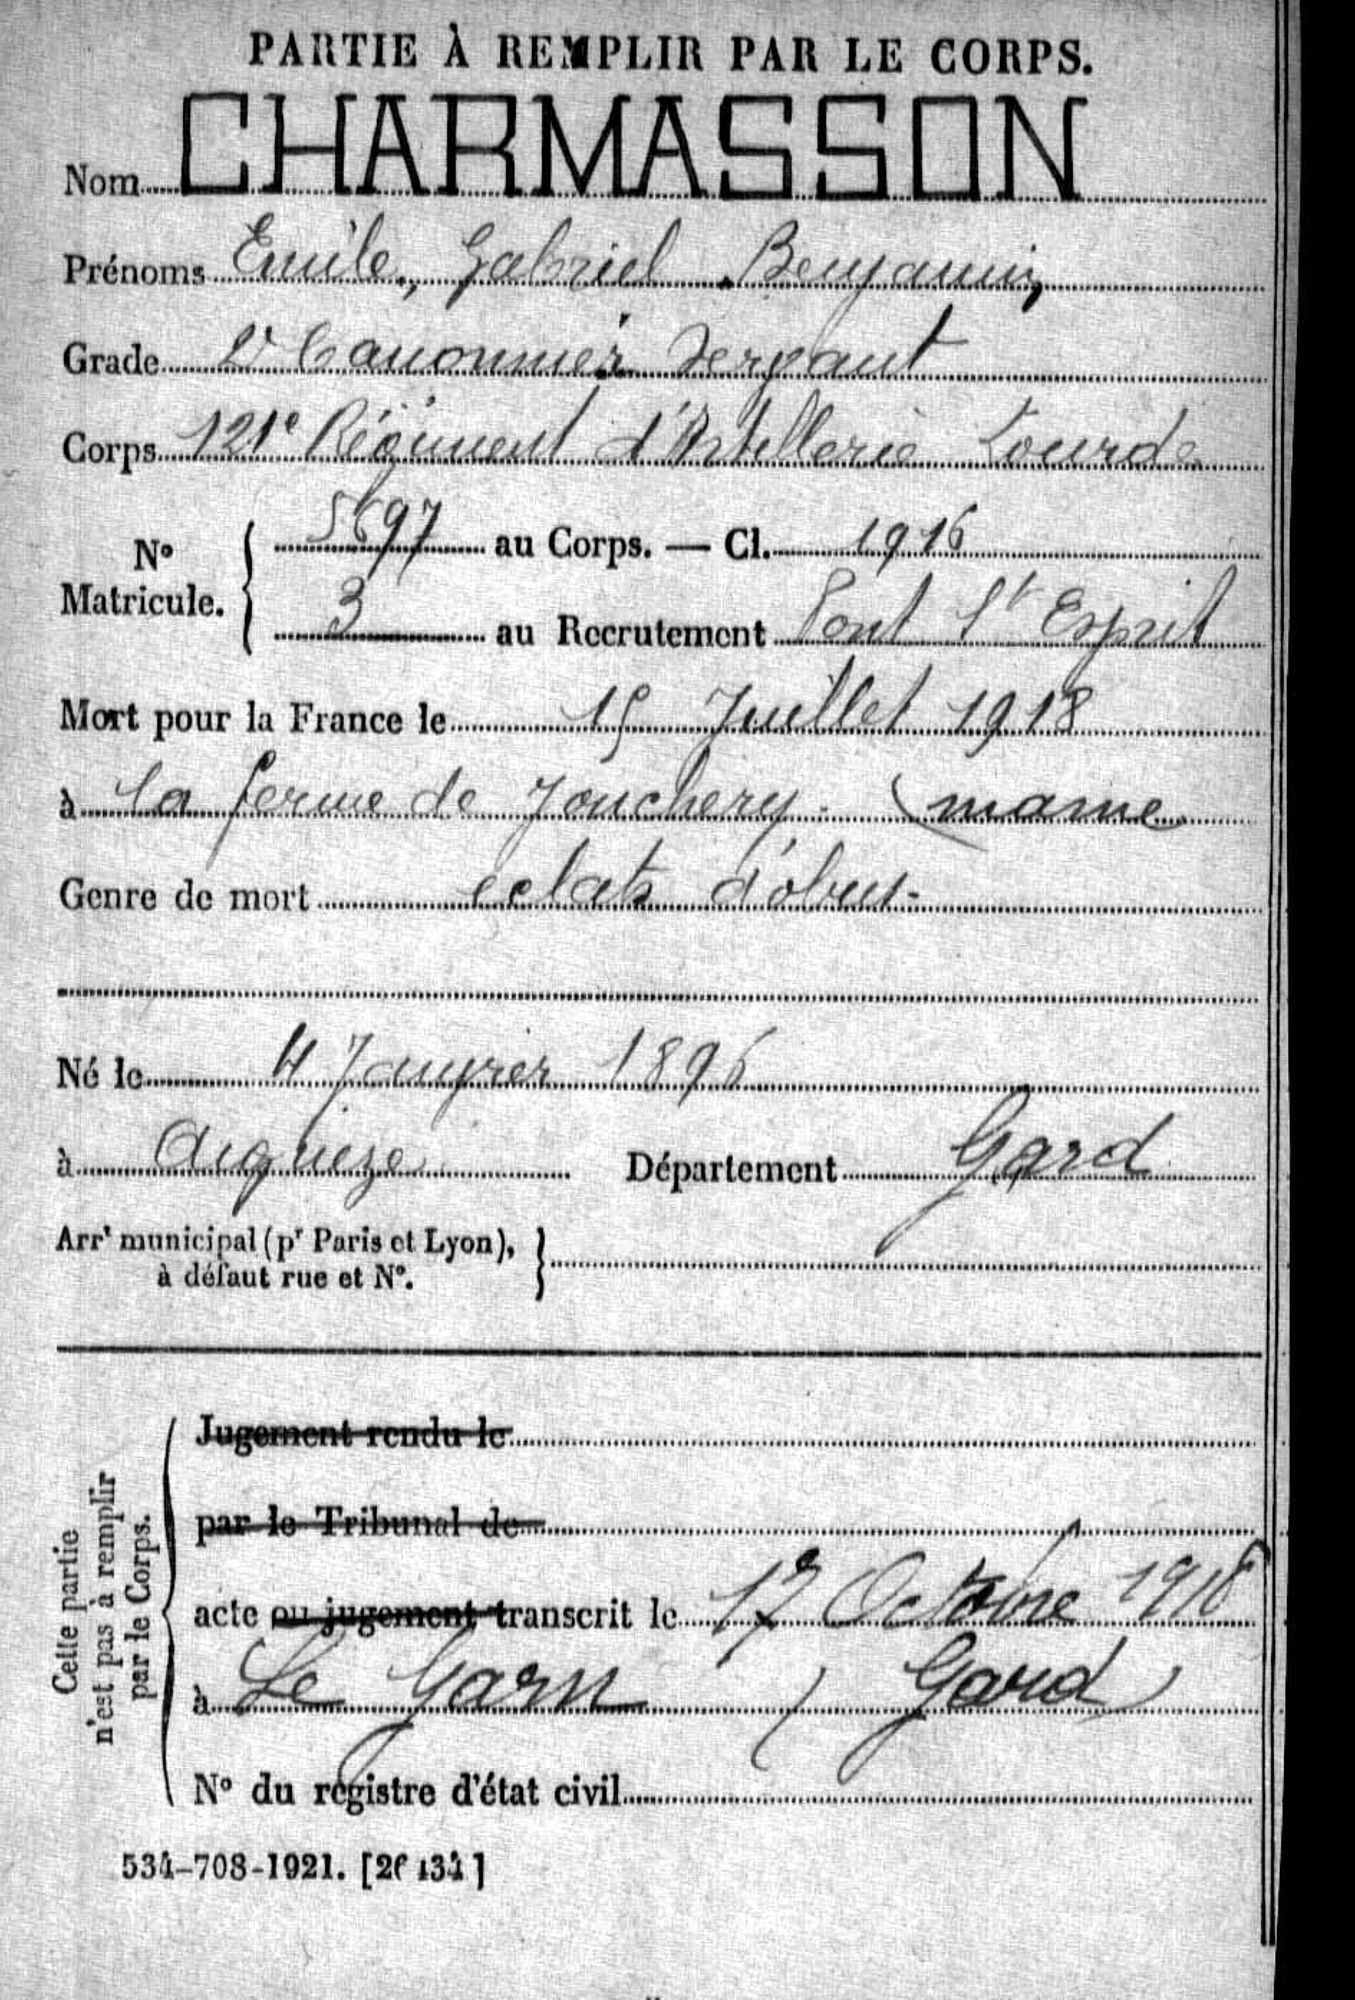 PARTIE À REMPLIR PAR LE CORPS.
Nom CHARMASSON
Prénoms Emile, Gabriel, Benjamin,
Grade 2e Canonnier Servant
Corps 121e Régiment d'Artillerie Lourde
No Matricule. { 5697 au Corps. — Cl. 1916
3 au Recrutement Pont St Esprit
Mort pour la France le 15 Juillet 1918
à la ferme de Jonchery. (marne
Genre de mort eclats d'obus-
Né le 4 Janvier 1896
à Aiguèze Département Gard
Arrt municipal (pr Paris et Lyon),
à défaut rue et No.
Cette partie
n'est pas à remplir
par le Corps.
Jugement rendu le
par le Tribunal de
acte ou jugement transcrit le 17 Octobre 1918
à Le Garn (Gard)
No du registre d'état civil
534-708-1921. [26434]